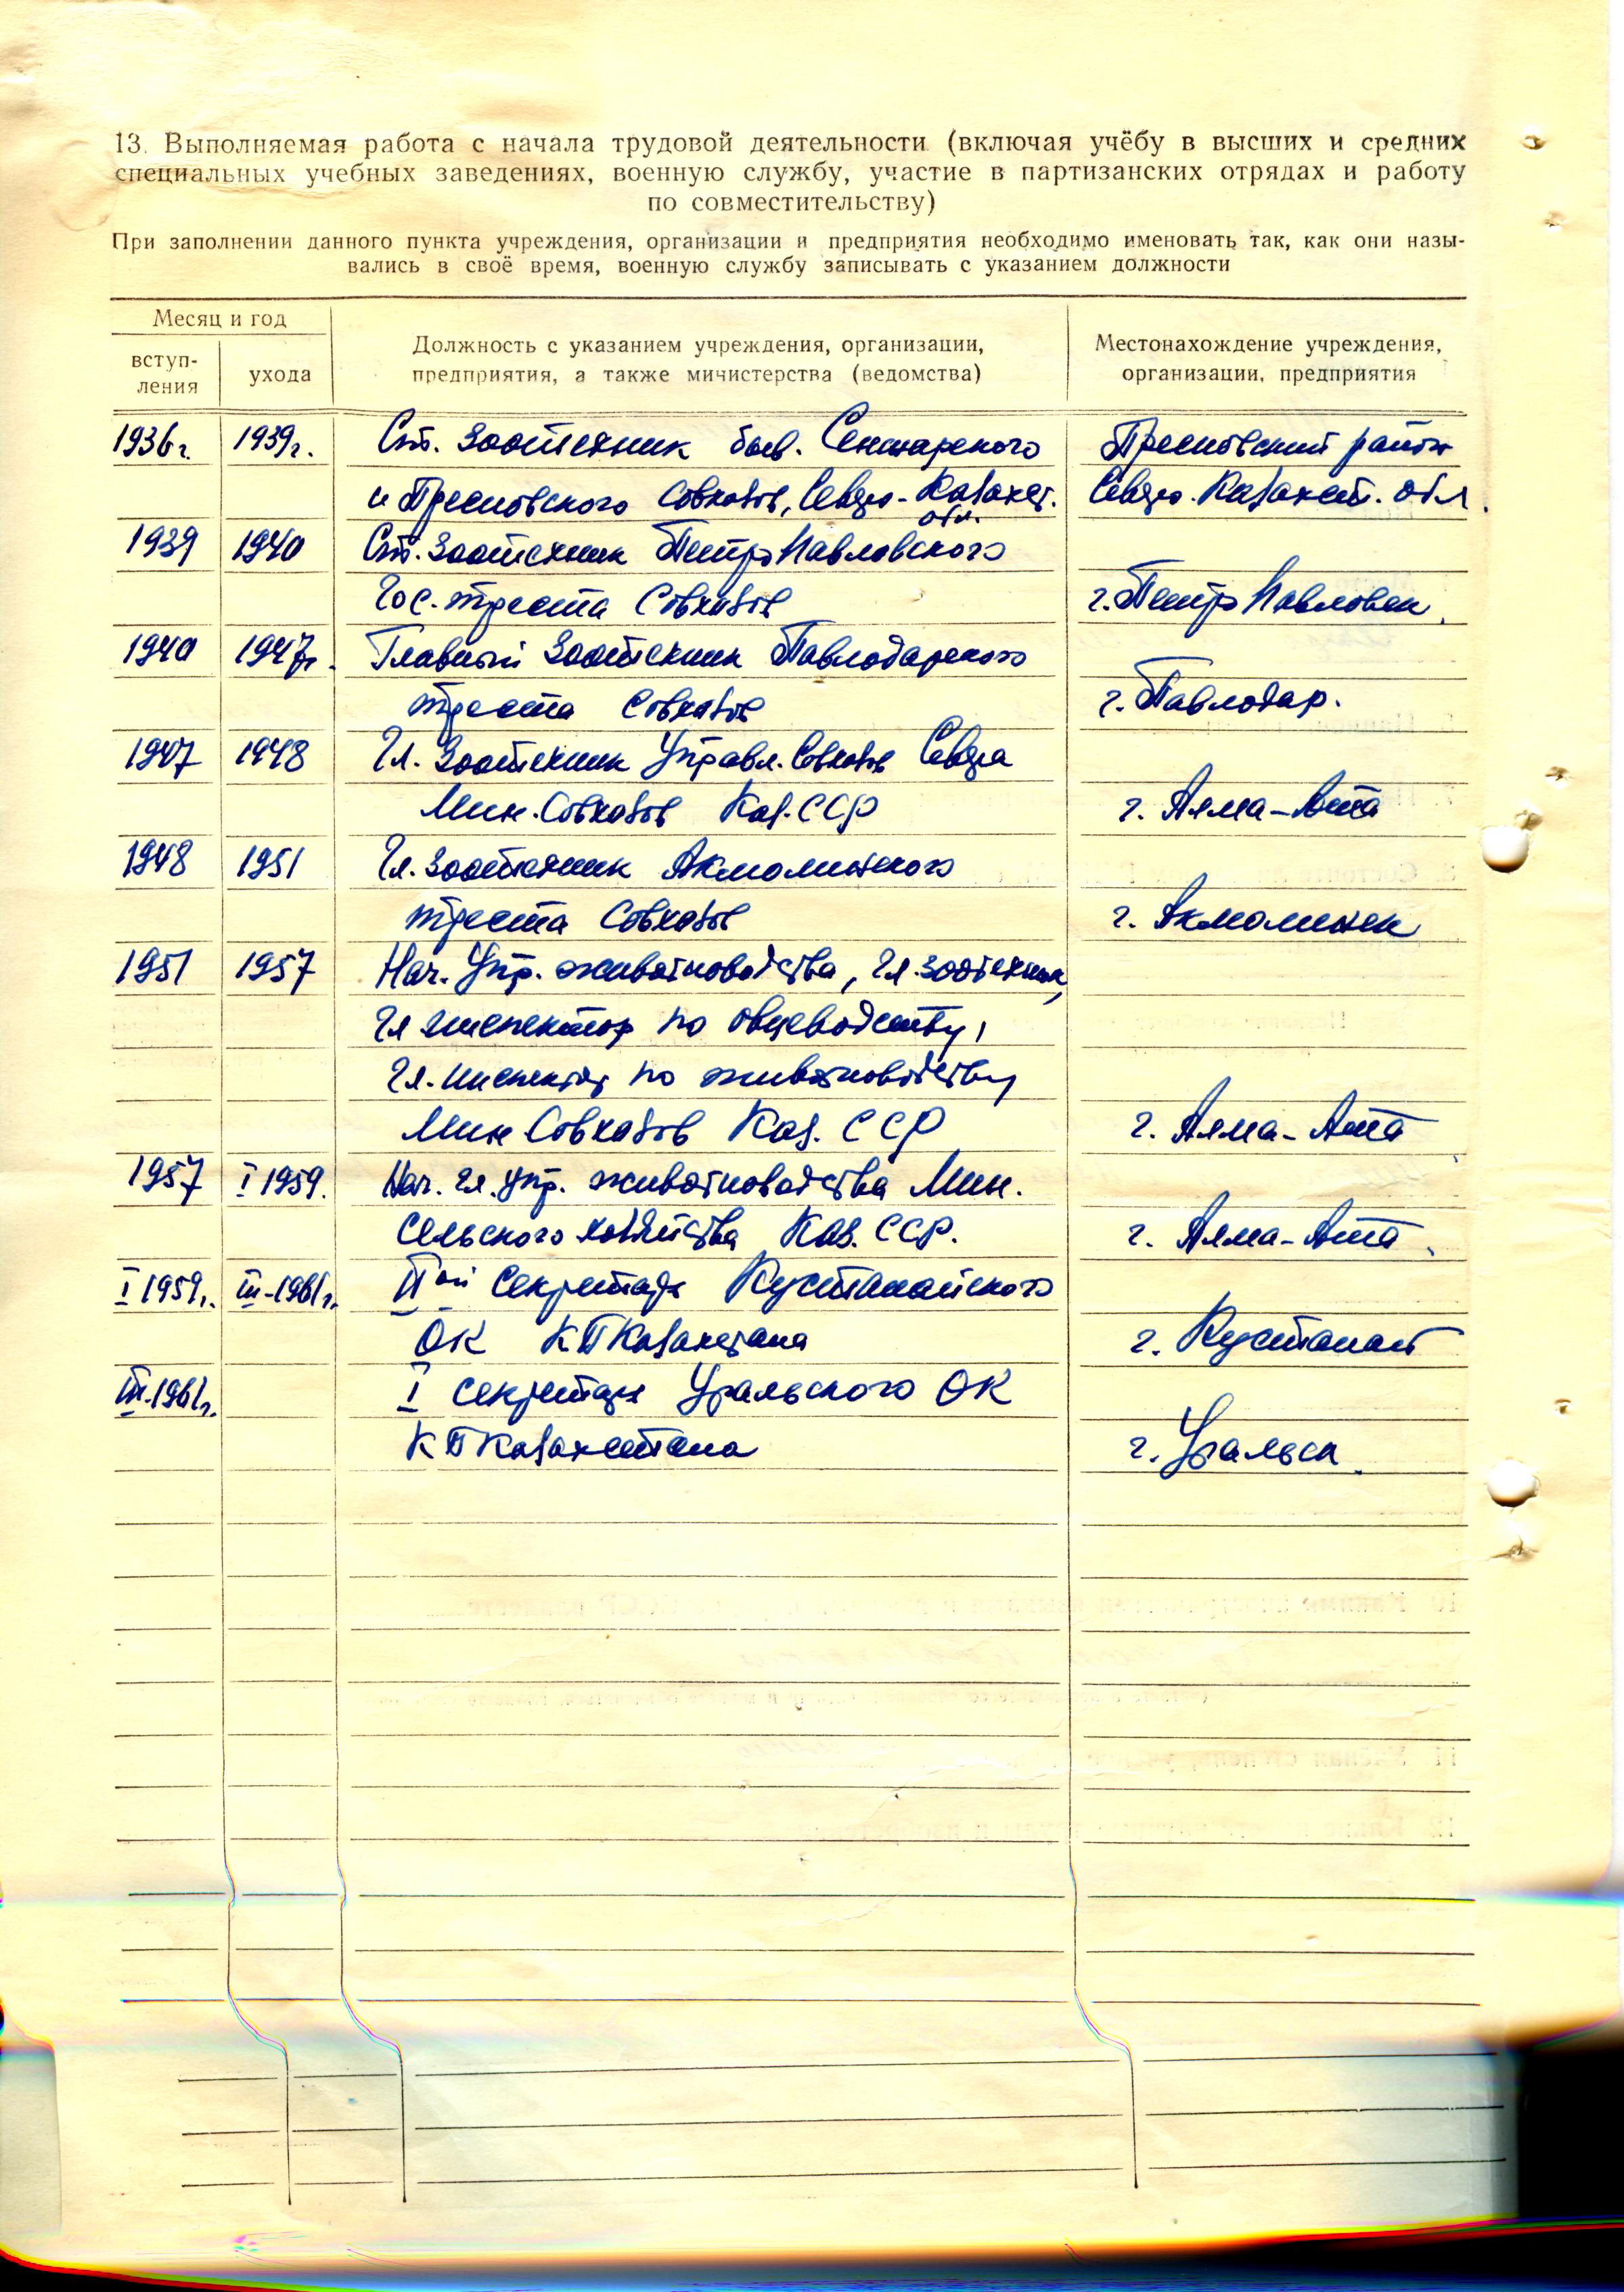 13. Выполняемая работа с начала трудовой деятельности (включая учёбу в высших и средних
специальных учебных заведениях, военную службу, участие в партизанских отрядах и работу
по совместительству)
При заполнении данного пункта учреждения, организации и предприятия необходимо именовать так, как они назы-
вались в своё время, военную службу записывать с указанием должности
Месяц и год
вступ-
ления
ухода
Должность с указанием учреждения, организации,
предприятия, а также министерства (ведомства)
Местонахождение учреждения,
организации, предприятия
1936г. 1939г. Ст. Зоотехник быв. Сенжарского Пресновский район
и Пресновского Совхозов, Северо-Казахст. Северо-Казахст. обл.
обл.
1939 1940 Ст. Зоотехник Петропавловского
Гос. треста Совхозов г. Петропавловск.
1940 1947г. Главный Зоотехник Павлодарского
треста Совхозов г. Павлодар.
1947 1948 Гл. Зоотехник Управл. Совхозов Севера
Мин. Совхозов Каз. ССР г. Алма-Ата
1948 1951 Гл. Зоотехник Акмолинского
треста Совхозов г. Акмолинск
1951 1957 Нач. Упр. животноводства, Гл. зоотехник,
Гл инспектор по овцеводству,
Гл. инспектор по животноводству
Мин Совхозов Каз. ССР г. Алма-Ата
1957 I 1959. Нач. Гл. упр. животноводства Мин.
Сельского хозяйства Каз. ССР. г. Алма-Ата.
I 1959г. III-1961г. IIой Секретарь Кустанайского
ОК КП Казахстана г. Кустанай
III-1961г. I Секретарь Уральского ОК
КП Казахстана г. Уральск.